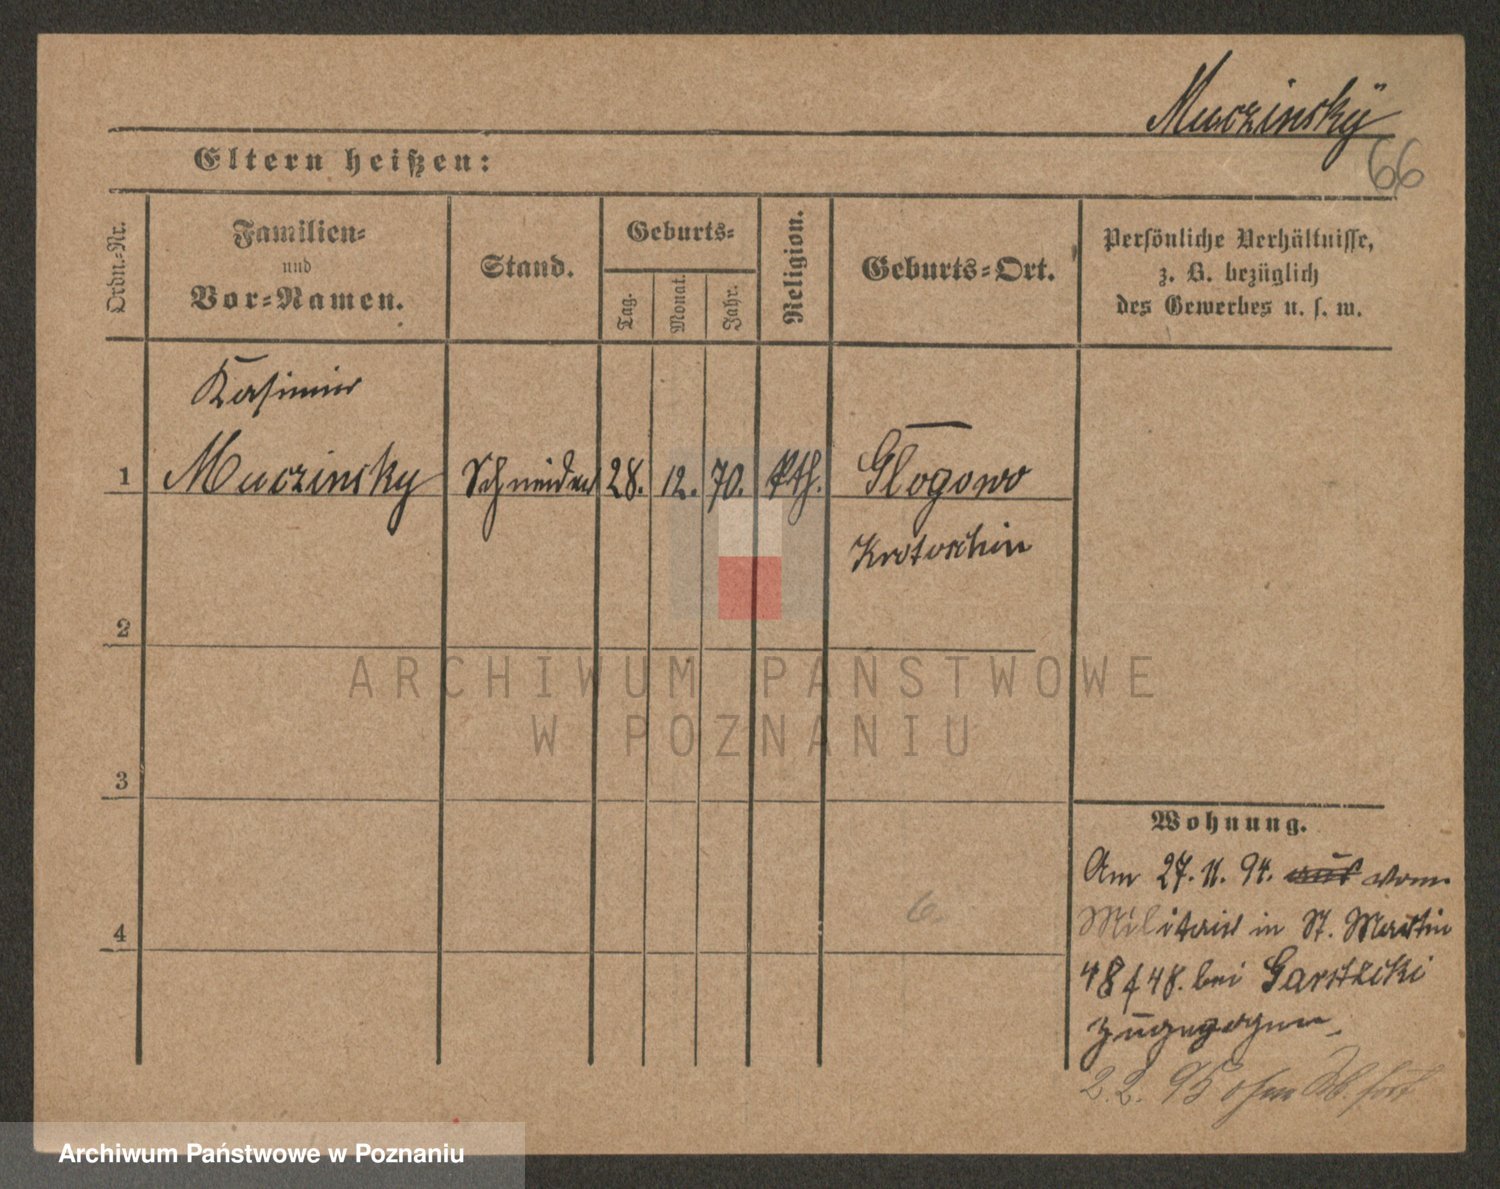 Muczinsky
66
Eltern heißen:
Ordn.-Nr.
Familien-
und
Vor-Namen.
Stand.
Geburts-
Tag.
Monat.
Jahr.
Religion.
Geburts-Ort.
Persönliche Verhältnisse,
z. B. bezüglich
des Gewerbes u. s. w.
Kasimir
1 Muczinsky Schneider 28. 12. 70. kth. Glogowo
Krotoschin
2
3
4
Wohnung.
Am 27. 11. 94. aus vom
Militair in St. Martin
48 bei
zugezogen
2. 2. 95 ohne Ab. fort
ARCHIWUM PAŃSTWOWE
W POZNANIU
Archiwum Państwowe w Poznaniu